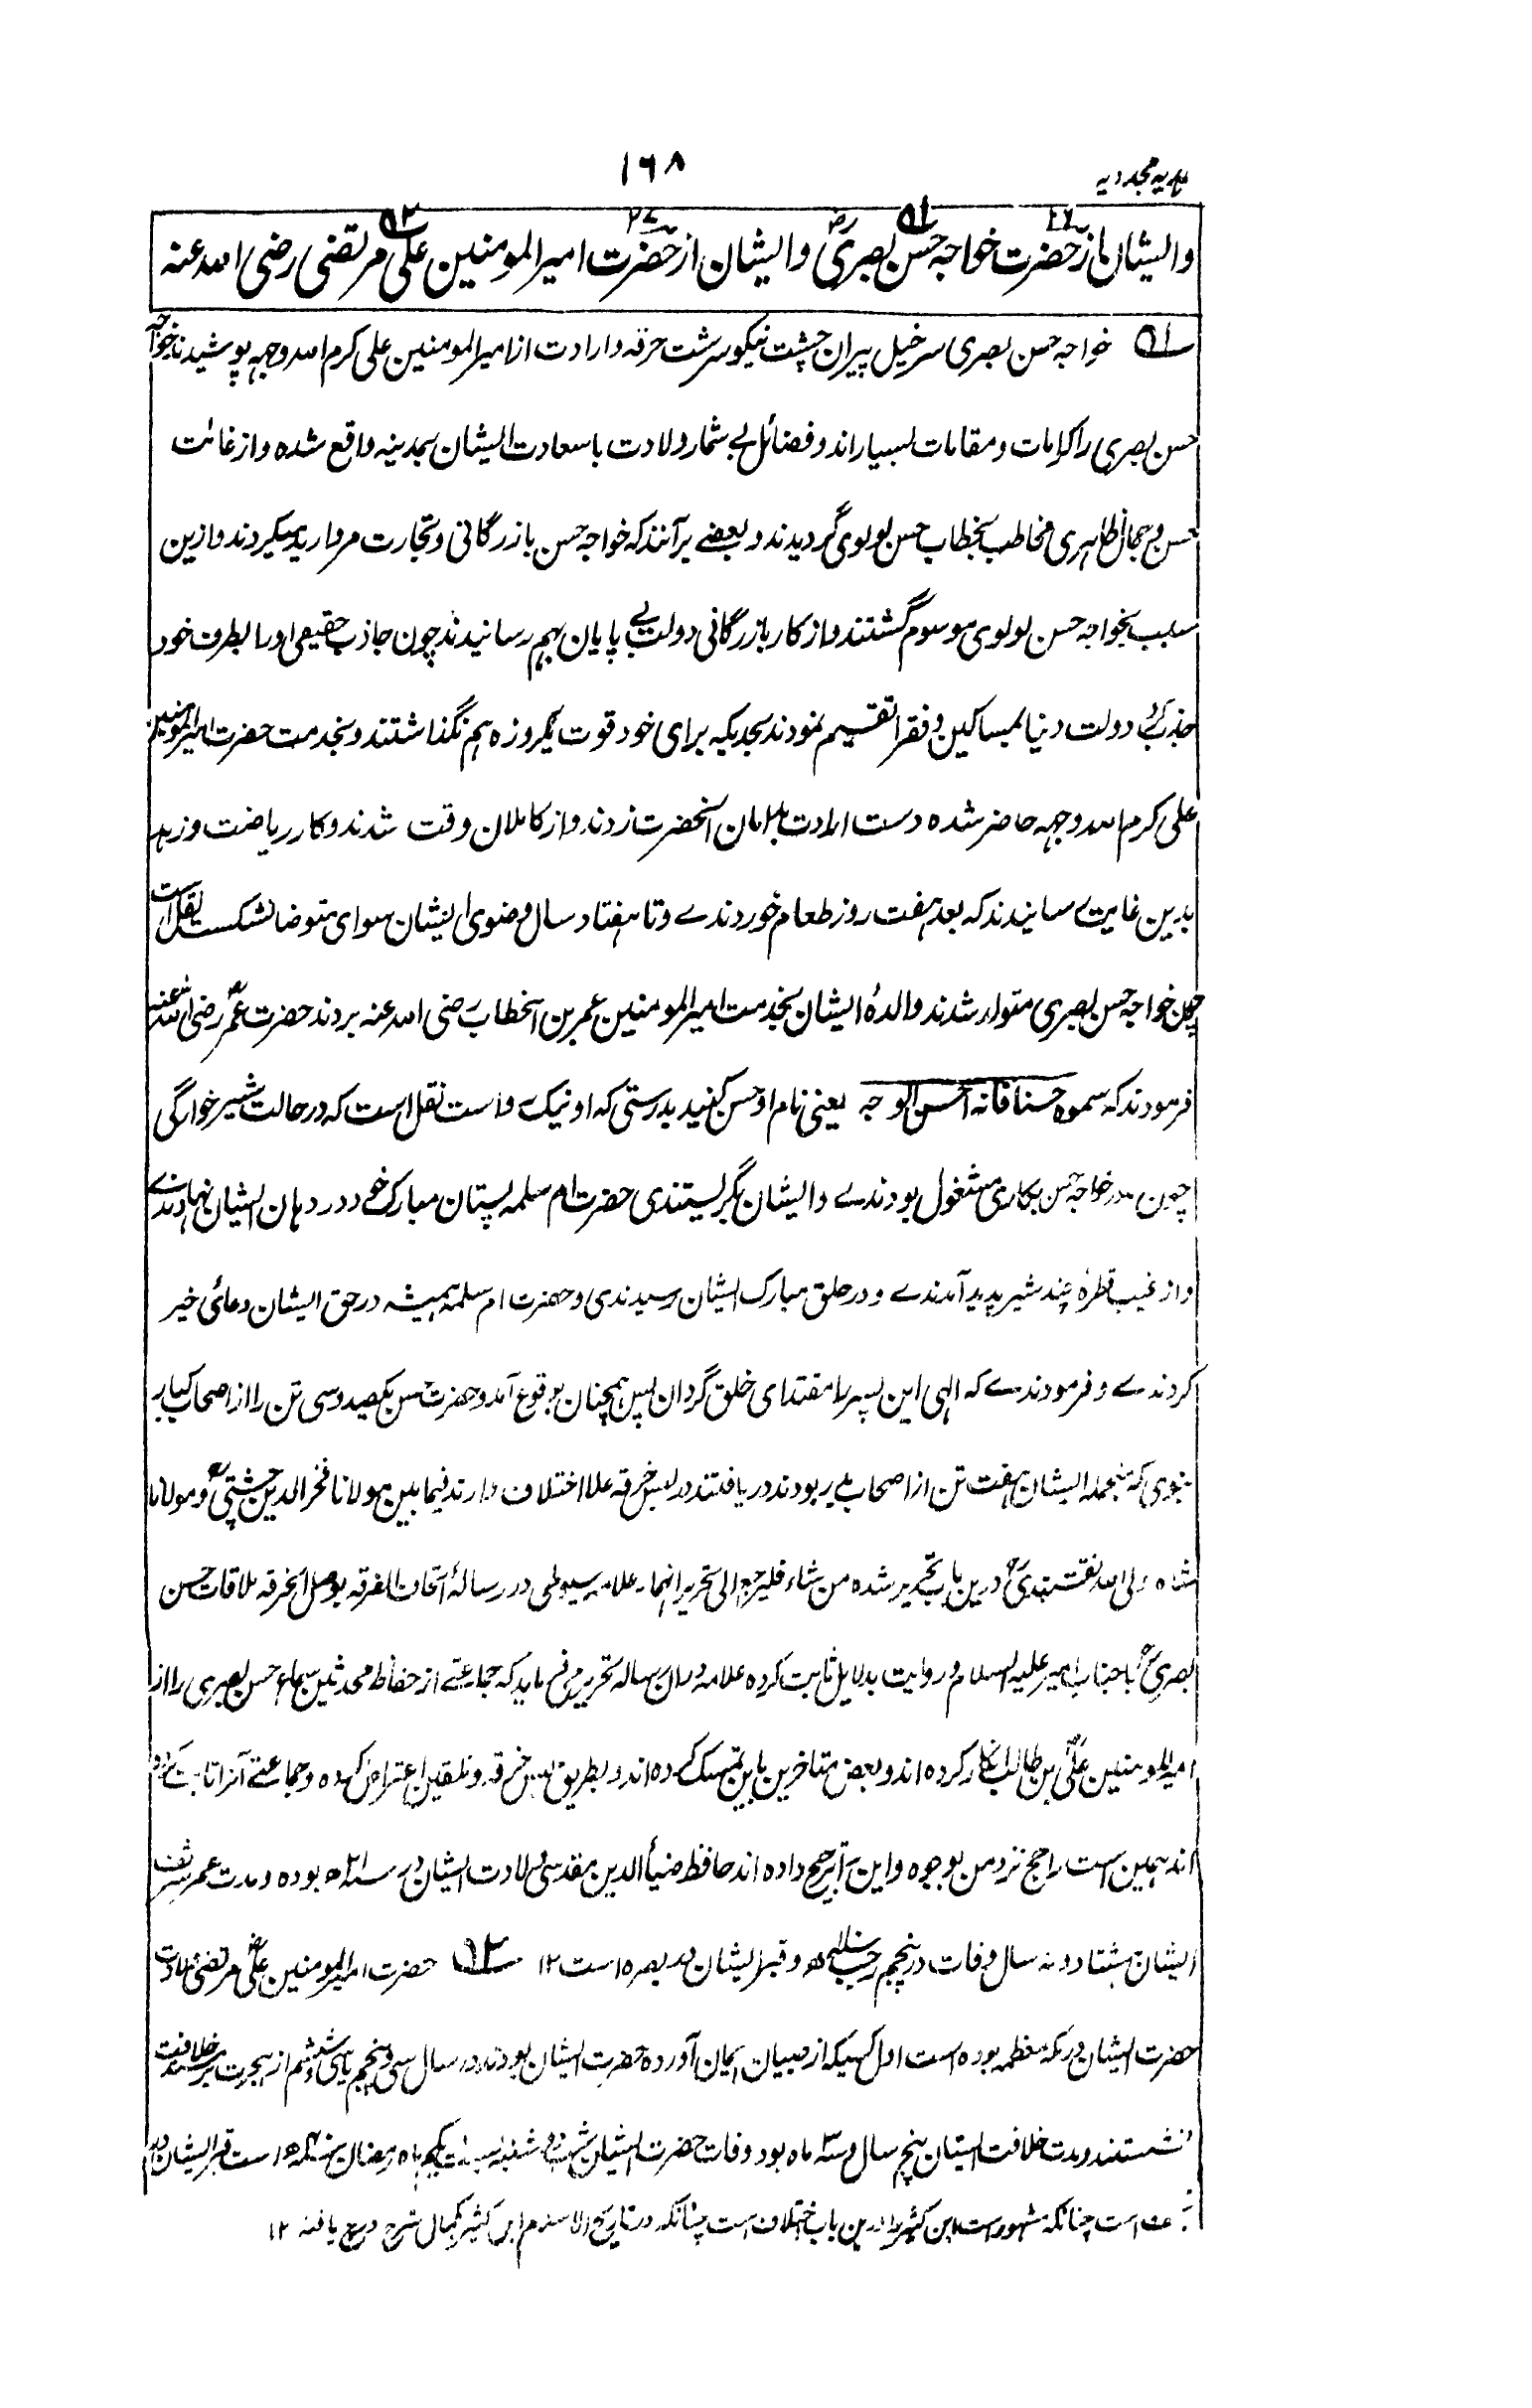 ہدیہ مجددیہ
۱۶۸
وایشان از حضرت خواجہ حسن بصری رض وایشان از حضرت امیرالمومنین علی مرتضی رضی اللہ عنہ
خواجہ حسن بصری سرخیل پیران چشت نیکو سرشت خرقہ و ارادت از امیرالمومنین علی کرم اللہ وجہہ پوشیدند خواجہ
حسن بصری را کرامات و مقامات بسیار اند و فضائل بے شمار ولادت با سعادت ایشان بمدینہ واقع شدہ و از غائت
حسن و جمال ظاہری مخاطب بخطاب حسن لولوی گردیدند و بعضے برآنند کہ خواجہ حسن بازرگانی و تجارت مروارید میکردند و ازین
سبب بخواجہ حسن لولوی موسوم گشتند و از کار بازرگانی دولت بے پایان بہم رسانیدند چون جاذب حقیقی او را بطرف خود
جذب کرد دولت دنیا بمساکین و فقرا تقسیم نمودند بحدیکہ برای خود قوت یکروزہ ہم نگذاشتند و بخدمت حضرت امیرالمومنین
علی کرم اللہ وجہہ حاضر شدہ دست ارادت بدامان آنحضرت زدند و از کاملان وقت شدند و کار ریاضت و زہد
بدین غایت رسانیدند کہ بعد ہفت روز طعام خوردندے و تا ہفتاد سال وضوی ایشان سوای متوضا نشکست نقل است
چون خواجہ حسن بصری متولد شدند والدۂ ایشان بخدمت امیرالمومنین عمر بن الخطاب رضی اللہ عنہ بردند حضرت عمر رضی اللہ عنہ
فرمودند کہ سموہ حسنا فانہ احسن الوجہ یعنی نام او حسن کنید بدرستی کہ او نیک رو است نقل است کہ در حالت شیر خوارگی
چون مادر خواجہ حسن بکاری مشغول بودندے و ایشان بگریستندی حضرت ام سلمہ پستان مبارک خود در دہان ایشان نہادندے
و از غیب قطرۂ چند شیر پدید آمدندے و در حلق مبارک ایشان رسیدندی و حضرت ام سلمہ ہمیشہ در حق ایشان دعائی خیر
کردندے و فرمودندے کہ الہی این پسر را مقتدای خلق گردان پس ہمچنان بوقوع آمد و حضرت حسن یکصد و سی تن را از اصحاب کبار
نبوی کہ منجملہ ایشان ہفت تن از اصحاب بدر بودند دریافتند در لبس خرقہ علما اختلاف دارند فیما بین مولانا فخرالدین چشتی و مولانا
شاہ ولی اللہ نقشبندی درین باب تحریر شدہ من شاء فلیرجع الی تحریرانہما علامہ سیوطی در رسالۂ اتحاف الفرقہ بوصل الخرقہ ملاقات حسن
بصری با جناب امیر علیہ السلام و روایت بدلایل ثابت کردہ علامہ دران رسالہ تحریر می فرماید کہ جماعتے از حفاظ محدثین سماع حسن بصری را از
امیرالمومنین علی بن ابی طالب انکار کردہ اند و بعض متاخرین باین تمسک کردہ اند و بطریق لبس خرقہ و تلقین اعتراض کردہ و جماعتے آنرا ثابت کردہ
اند ہمین است راجح نزد من بوجوہ و این را ترجیح دادہ اند حافظ ضیاء الدین مقدسی ولادت ایشان در سنہ ۲۱ھ بودہ و مدت عمر شریف
ایشان ہشتاد و نہ سال وفات در پنجم رجب سنہ ۱۱۰ھ و قبر ایشان در بصرہ است ۱۲ حضرت امیرالمومنین علی مرتضی ولادت
حضرت ایشان در مکہ معظمہ بودہ است اول کسیکہ از صبیان ایمان آوردہ حضرت ایشان بودند در سال سی و پنجم یا سی و ششم از ہجرت بر مسند خلافت
نشستند و مدت خلافت ایشان پنج سال و سہ ماہ بود وفات حضرت ایشان شب دوشنبہ بست یکم ماہ رمضان سنہ ۴۰ھ است قبر ایشان در
است چنانکہ مشہور است ابن کثیر را درین باب اختلاف است چنانکہ در تاریخ الاسلام ابن کثیر بکمال شرح درج یافتہ ۱۲